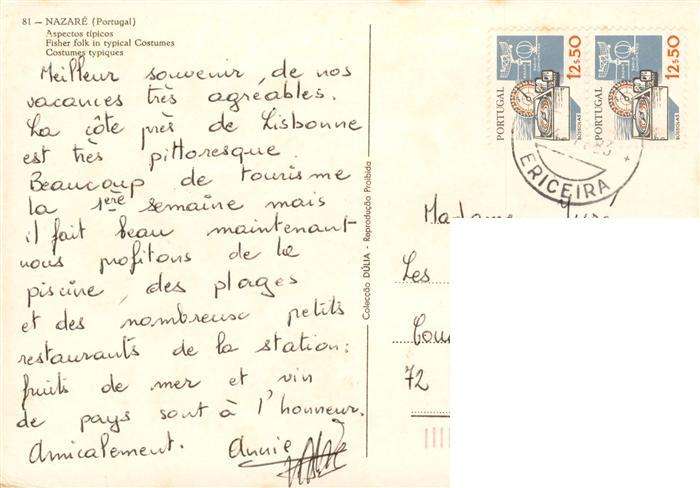 81 — NAZARÉ (Portugal)
Aspectos típicos
Fisher folk in typical Costumes
Costumes typiques
Meilleur souvenir de nos
vacances très agréables.
La côte près de Lisbonne
est très pittoresque
Beaucoup de tourisme
la 1ère semaine mais
il fait beau maintenant
nous profitons de la
piscine, des plages
et des nombreux petits
restaurants de la station:
fruits de mer et vin
de pays sont à l'honneur.
Amicalement. Annie
Colecção DÚLIA - Reprodução Proibida
PORTUGAL 12$50 BÚSSOLAS
PORTUGAL 12$50 BÚSSOLAS
ERICEIRA
Madame
Les
72